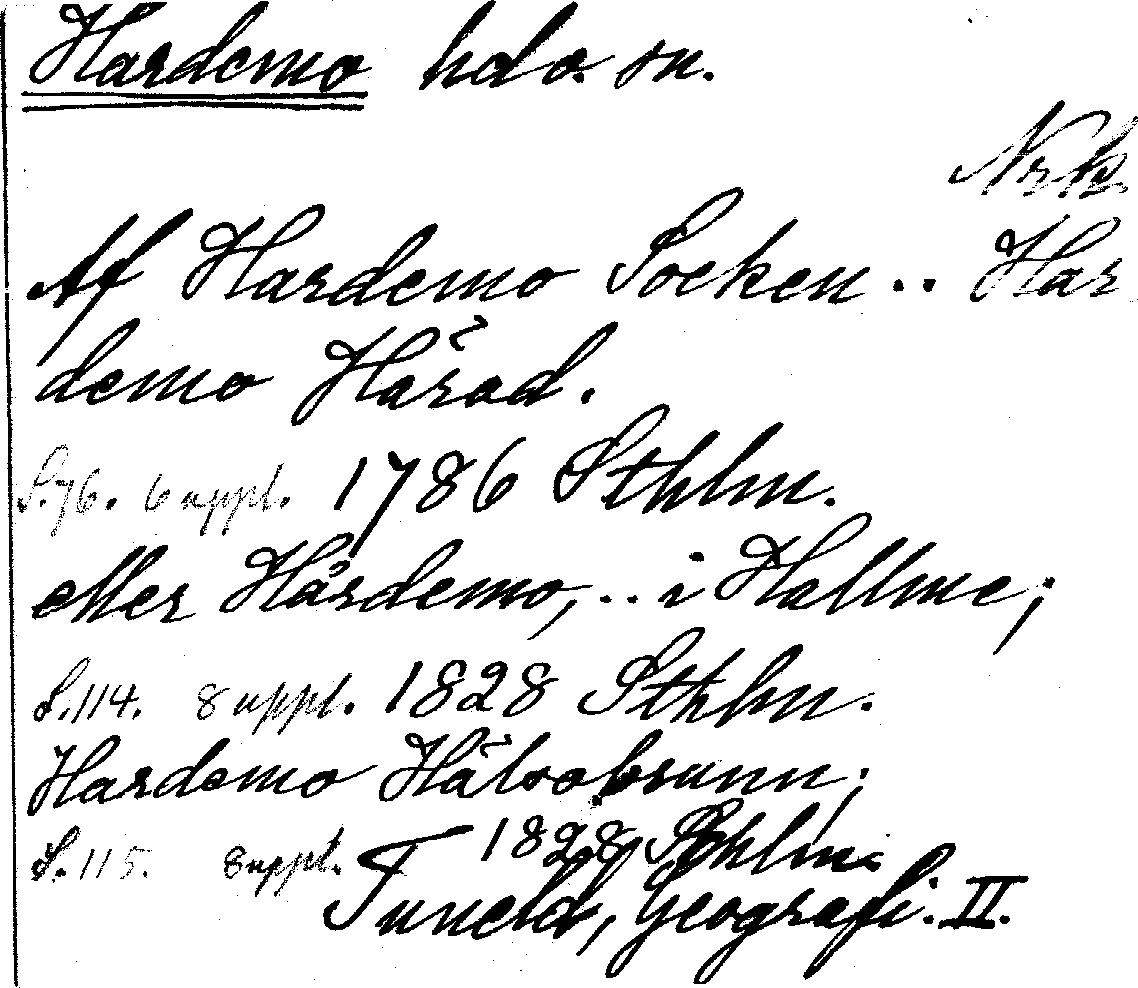 Hardemo hd o. sn.
Nrk.
Af Hardemo Socken .. Har
demo Härad.
S. 76. 6 uppl. 1786 Sthlm.
eller Hårdemo, .. i Hallme;
S. 114. 8 uppl. 1828 Sthlm.
Hardemo Hälsobrunn;
S. 115. 8 uppl. 1828 Sthlm.
Tuneld, Geografi. II.